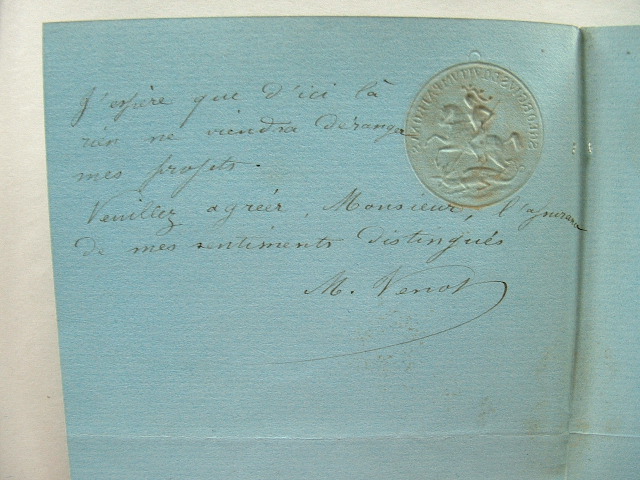 J'espère que d'ici là
rien ne viendra déranger
mes projets.
Veuillez agréer, Monsieur, l'assurance
de mes sentiments distingués
M. Venot